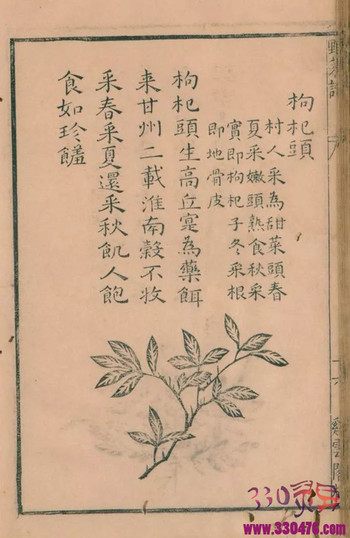 枸杞頭
村人采為甜菜頭春
夏采嫩頭熟食秋采
實即枸杞子冬采根
即地骨皮
枸杞頭生高丘寔為藥餌
来甘州二載淮南穀不收
采春采夏還采秋飢人飽
食如珍饈
330
www.330476.com